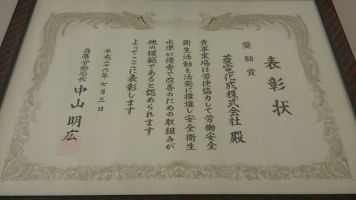 表彰状
奨励賞
菱電化成株式会社 殿
貴事業場は労使協力して労働安全
衛生活動を活発に推進し安全衛生
水準が優秀で改善のための取組みが
他の模範であると認められます
よってここに表彰します
平成二十六年七月三日
兵庫労働局長
中山明広